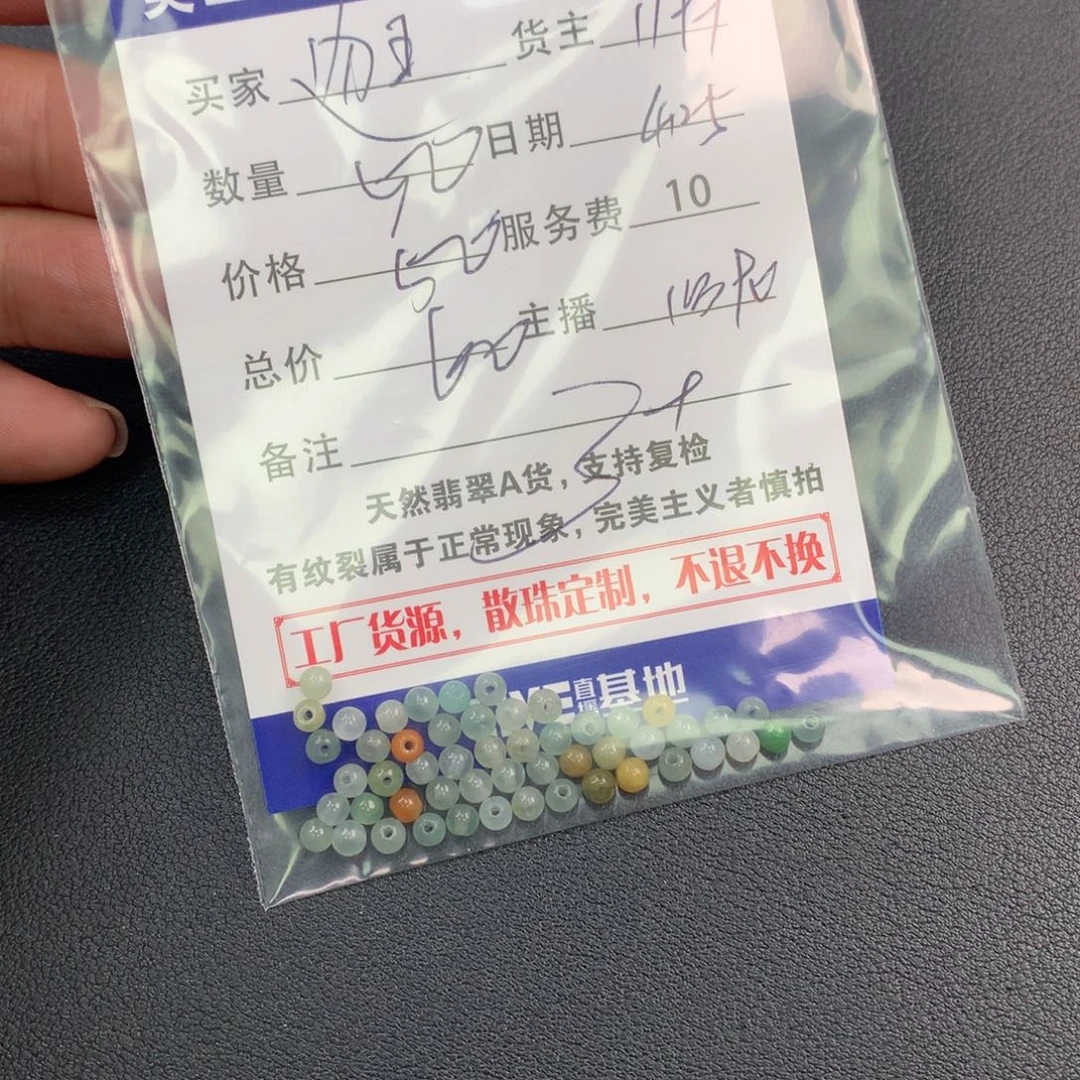 买家 货主
数量 日期 4.25
价格 50 服务费 10
总价 60 主播
备注
天然翡翠A货，支持复检
有纹裂属于正常现象，完美主义者慎拍
工厂货源，散珠定制，不退不换
直播基地